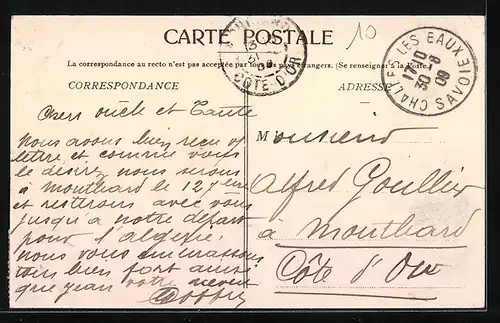 CARTE POSTALE
10
La correspondance au recto n'est pas acceptée par tous les pays étrangers. (Se renseigner à la Poste.)
CORRESPONDANCE
ADRESSE
CÔTE-D'OR
CHALLES LES EAUX SAVOIE
17-10
30-8
09
Chers oncle et Tante
nous avons bien recu v/
lettre et comme vous
le désirez nous serons
à Montbard le 12 7 em
et resterons avec vous
jusqu'a notre départ
pour l'algerie.
nous vous embrassons
tous bien fort ainsi
que jean votre neveu
Monsieur
Alfred Goullier
à Montbard
Côte d'Or